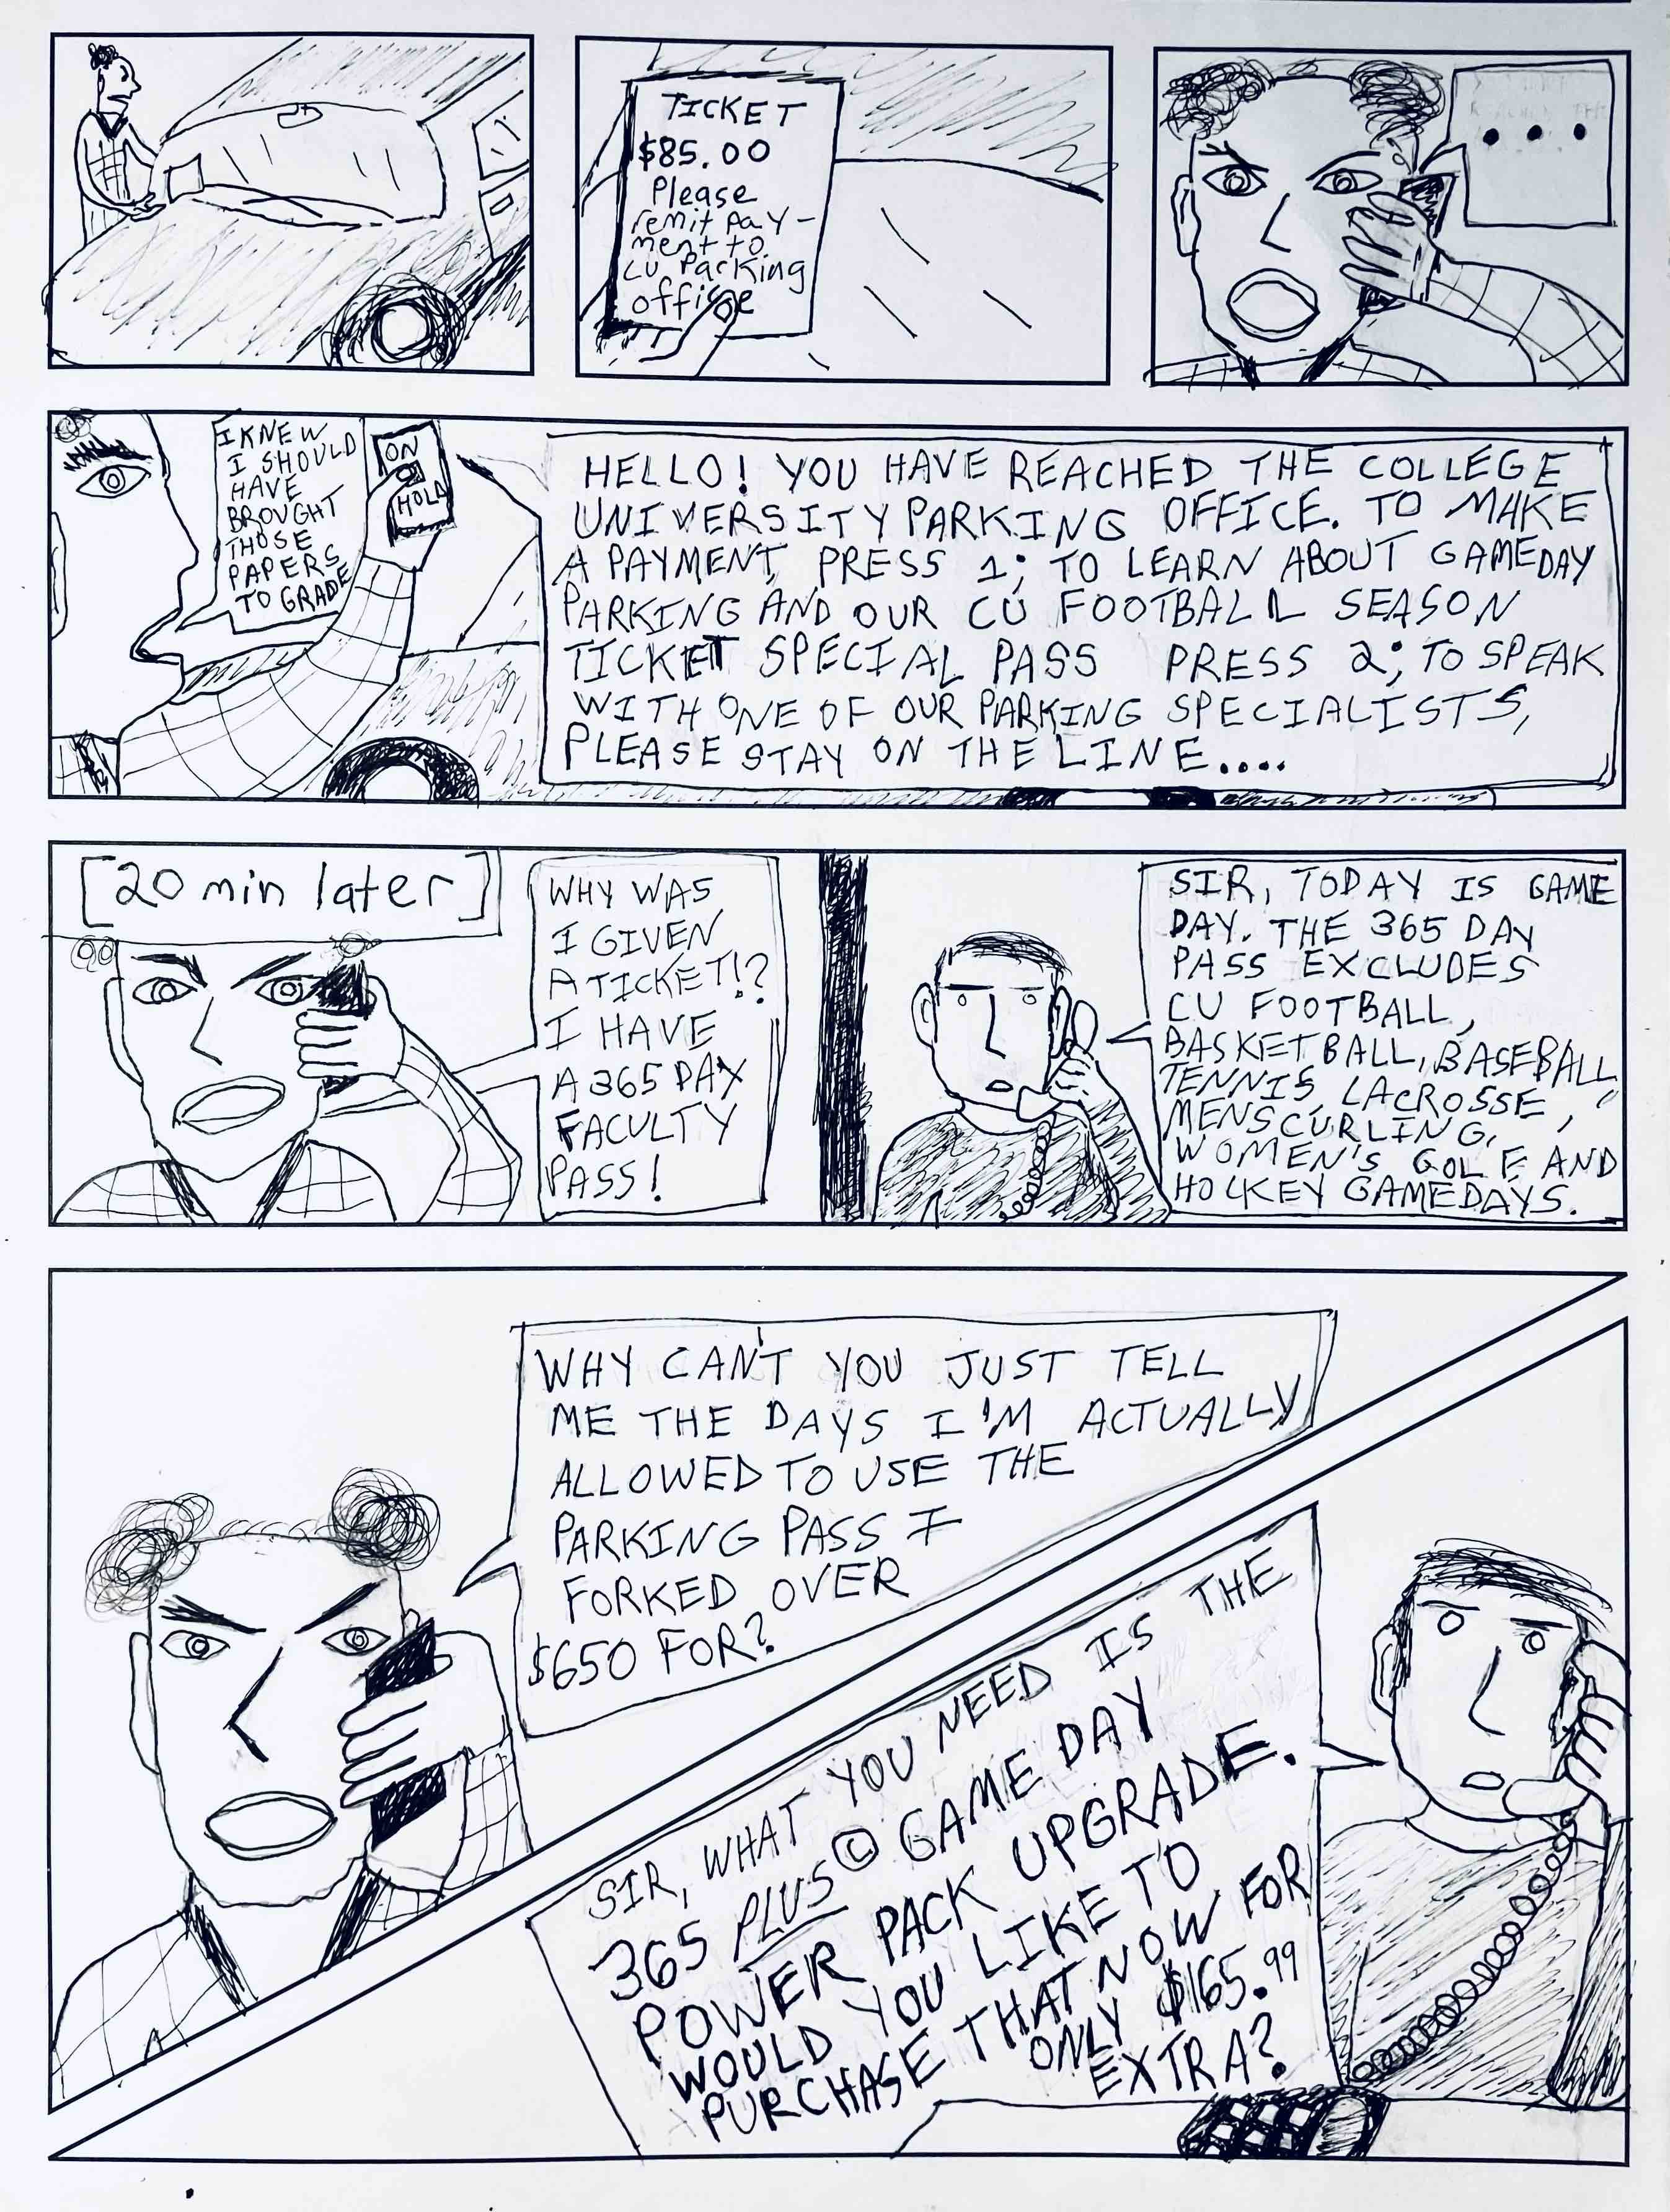 TICKET
$85.00
Please
remit pay-
ment to
CU Parking
office
...
I KNEW
I SHOULD
HAVE
BROUGHT
THOSE
PAPERS
TO GRADE
ON
HOLD
HELLO! YOU HAVE REACHED THE COLLEGE
UNIVERSITY PARKING OFFICE. TO MAKE
A PAYMENT, PRESS 1; TO LEARN ABOUT GAMEDAY
PARKING AND OUR CU FOOTBALL SEASON
TICKET SPECIAL PASS PRESS 2; TO SPEAK
WITH ONE OF OUR PARKING SPECIALISTS,
PLEASE STAY ON THE LINE....
[20 min later]
WHY WAS
I GIVEN
A TICKET!?
I HAVE
A 365 DAY
FACULTY
PASS!
SIR, TODAY IS GAME
DAY. THE 365 DAY
PASS EXCLUDES
CU FOOTBALL,
BASKETBALL, BASEBALL,
TENNIS, LACROSSE,
MENS CURLING,
WOMEN'S GOLF AND
HOCKEY GAMEDAYS.
WHY CAN'T YOU JUST TELL
ME THE DAYS I'M ACTUALLY
ALLOWED TO USE THE
PARKING PASS I
FORKED OVER
$650 FOR?
SIR, WHAT YOU NEED IS THE
365 PLUS © GAME DAY
POWER PACK UPGRADE.
WOULD YOU LIKE TO
PURCHASE THAT NOW FOR
ONLY $165.99
EXTRA?